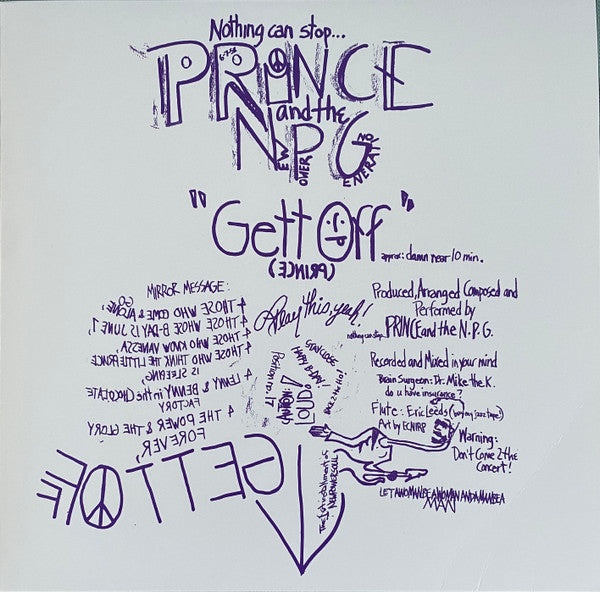 Nothing can stop...
PRINCE
6-7-58
and the
NPG
NEW POWER GENERATION
"Gett Off"
approx: damn near 10 min.
(PRINCE)
MIRROR MESSAGE:
4 THOSE WHO COME & GO ALONE!
4 THOSE WHOSE B-DAY IS JUNE 7
4 THOSE WHO KNOW VANESSA
4 THOSE WHO THINK THE LITTLE PRINCE
IS SLEEPING
4 LENNY & BENNY in the CHOCOLATE
FACTORY
4 THE POWER & THE GLORY
FOREVER,
GETT OFF
Play this, yeah!
STAY CLOSE
HAPPY B-DAY!
CAUTION:
LOUD!
The 1st installment of
NEW POWER SOUL
Produced, Arranged Composed and
Performed by
nothing can stop... PRINCE and the N.P.G.
Recorded and Mixed in your mind
Brain Surgeon: Dr. Mike the K.
do u have insurance?
Flute: Eric Leeds
Art by ECNIRP
Warning:
Don't Come 2 the
Concert!
LET A WOMAN BE A WOMAN AND A MAN BE A
MAN